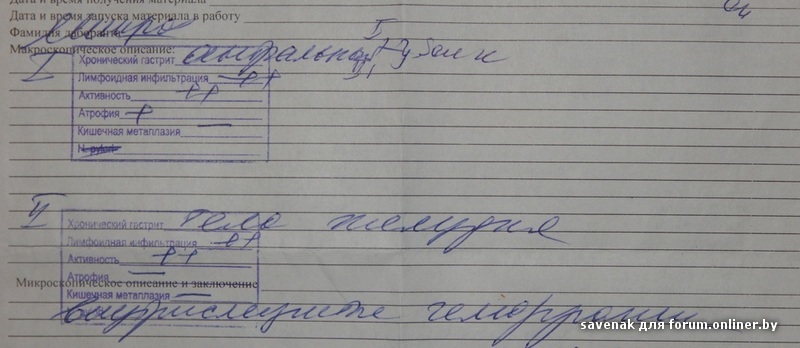 Дата и время получения материала
Дата и время запуска материала в работу
Фамилия лаборанта
Макроскопическое описание:
I
Хронический гастрит антральный
Лимфоидная инфильтрация ++
Активность ++
Атрофия +
Кишечная метаплазия —
H. pylori
II
Хронический гастрит тело желудка
Лимфоидная инфильтрация ++
Активность ++
Атрофия —
Микроскопическое описание и заключение
Кишечная метаплазия —
внутрислизистые геморрагии
savenak для forum.onliner.by